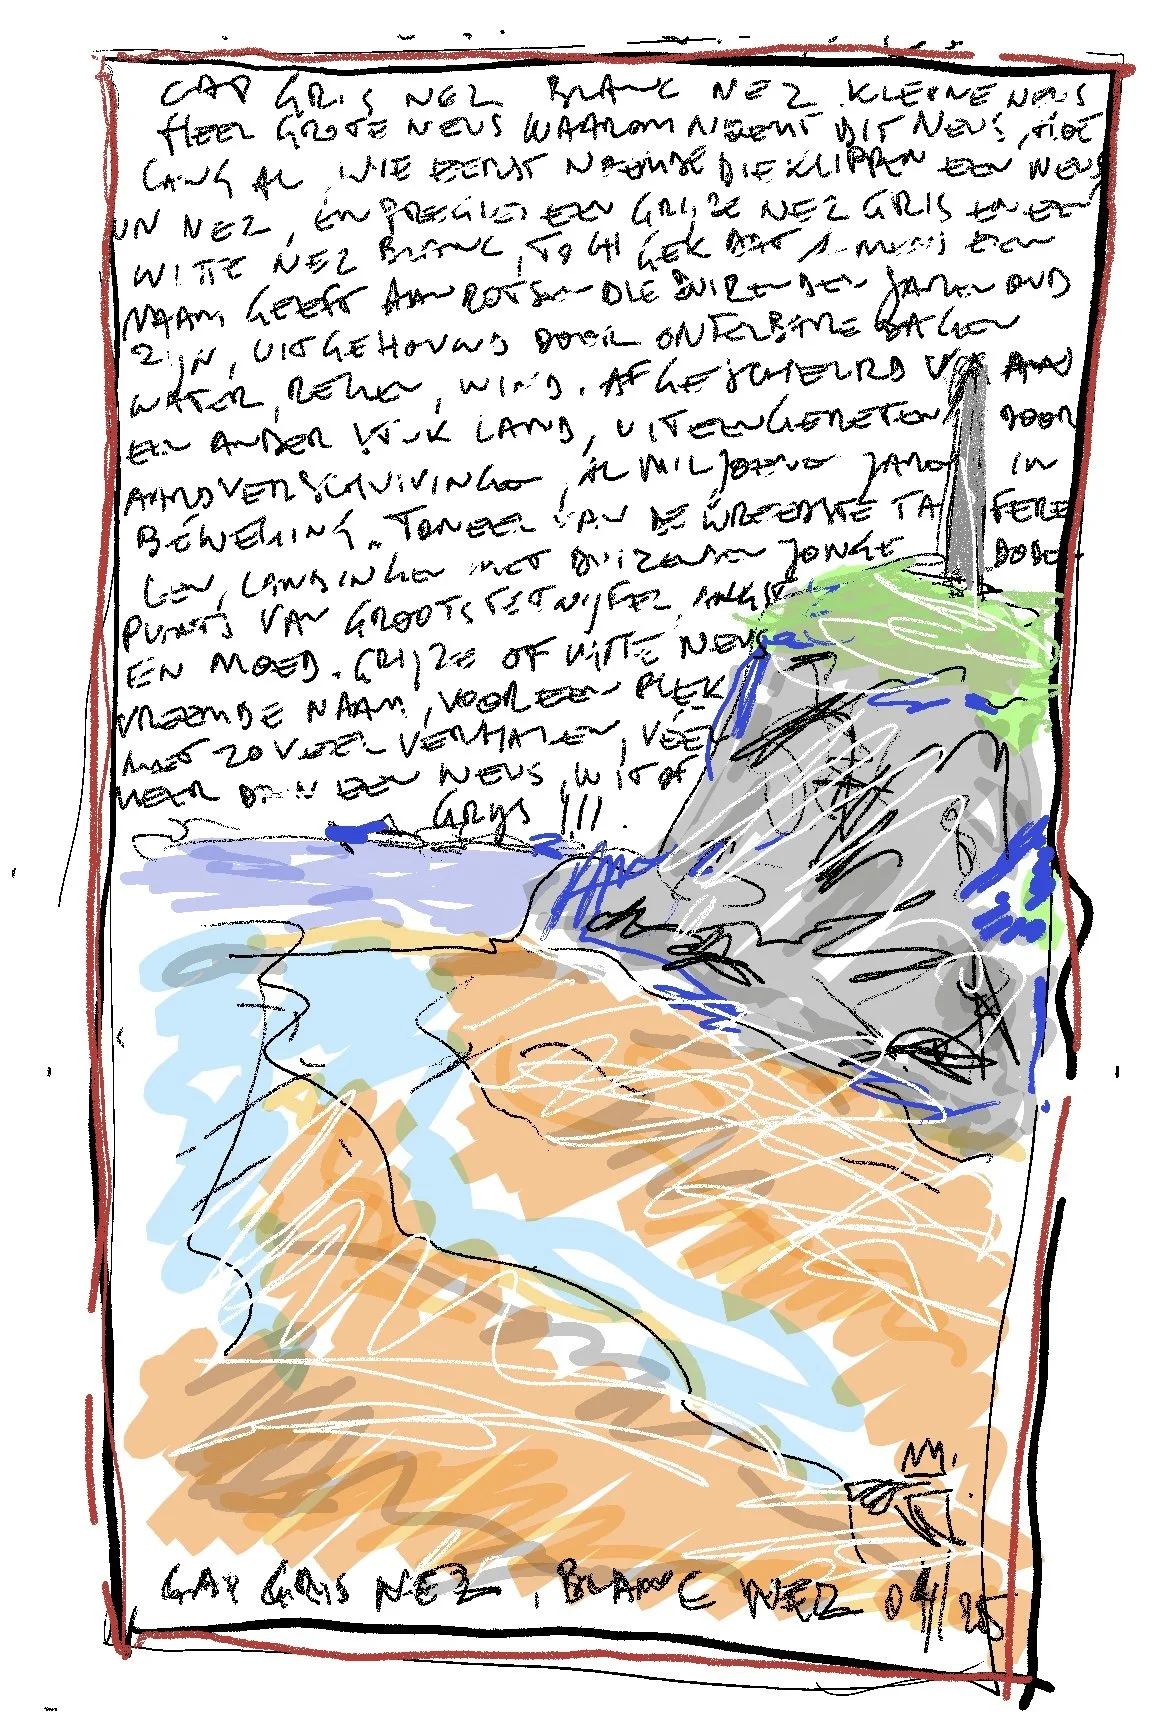 CAP GRIS NEZ BLANC NEZ KLEINE NEUS
HEEL GROTE NEUS WAAROM NEEMT DIT NEUS, HOE
LANG AL, WIE EERST NOEMDE DIE KLIPPEN EEN NEUS
UN NEZ, EN PRECIES EEN GRIJZE NEZ GRIS EN EEN
WITTE NEZ BLANC, TOCH GEK DAT 1 MENS EEN
NAAM GEEFT AAN ROTSEN DIE DUIZENDEN JAREN OUD
ZIJN, UITGEHOUWD DOOR ONTELBARE DAGEN
WATER, REGEN, WIND. AFGESCHEURD VAN
EEN ANDER STUK LAND, UITEENGERETEN DOOR
AARDVERSCHUIVINGEN, AL MILJOENEN JAREN IN
BEWEGING. TONEEL VAN DE WREEDSTE TAFERE
LEN, LANDINGEN MET DUIZENDEN JONGE DODEN
PUNTS VAN GROOTSTE TWIJFEL, ANGST
EN MOED. GRIJZE OF WITTE NEUS
VREEMDE NAAM, VOOR EEN PLEK
MET ZOVEEL VERHALEN, VEEL
MEER DAN EEN NEUS, WIT OF
GRIJS !!!
GAP GRIS NEZ, BLANC NEZ 04/25